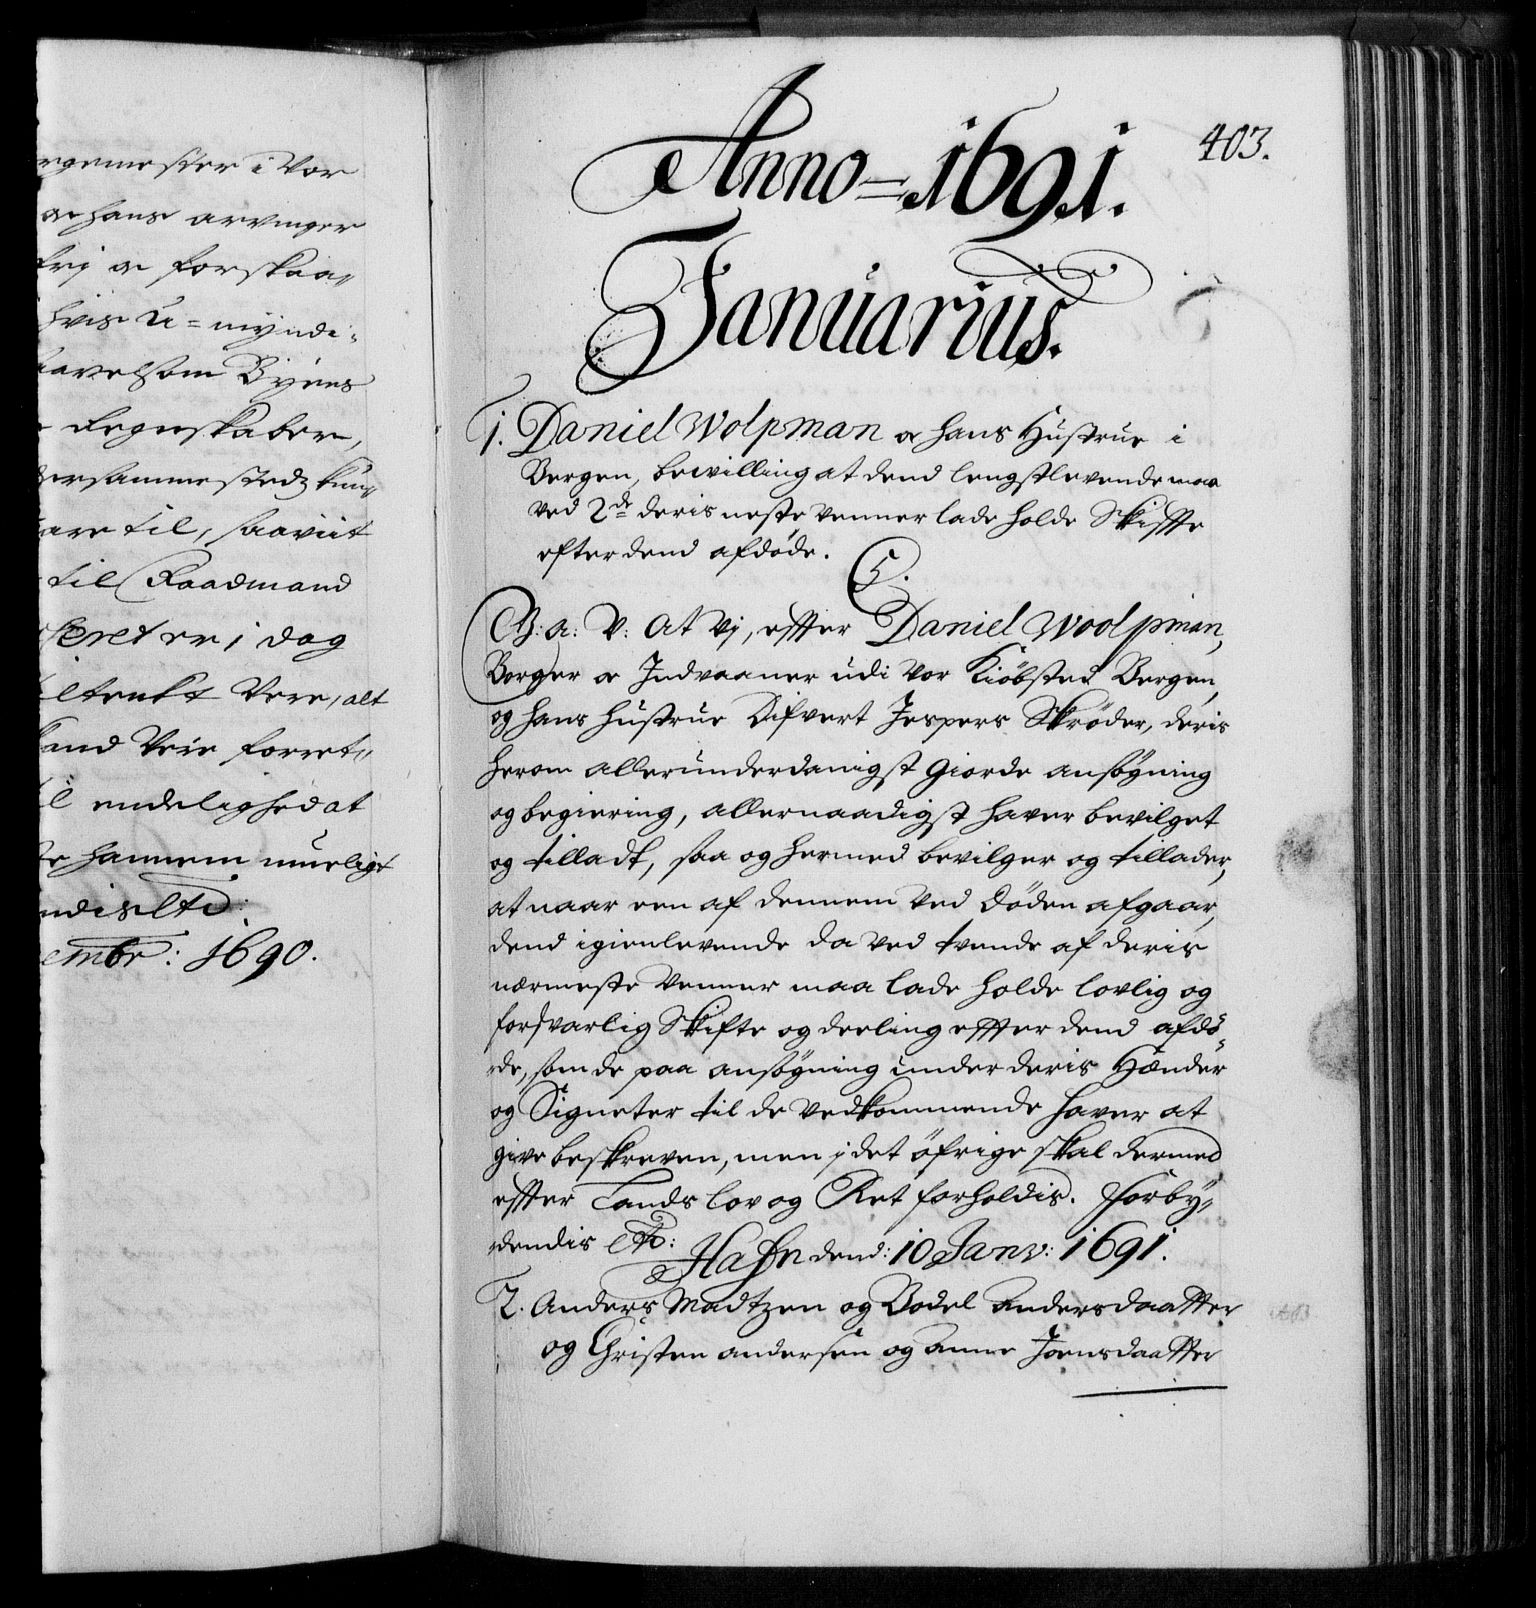 rgemester i Vor
oc hans arvinger
frj oc forskaa„
hvis U=myndi-
som Byens
Regnskaber,
dersammestedz kun„
are til, saaviit
til Raadmand
seret er i dag
iltenkt Vere, alt
Veie forret„
endelighed at
te hannem muligt
ndis etc:
embr: 1690.
403.
Anno=1691.
Januarius.
1. Daniel Wolpman oc hans Hustrue i
Bergen, bewilling at dend lengstlevende maa
ved 2de deris neste venner lade holde Skiffte
efter dend afdøde.
C5.
G: a: V: at Vj, effter Daniel Woolpman,
Borger oc Indvaaner udi vor Kiöbsted Bergen,
og hans hustrue Difvert Jespers Skrøder, deris
herom allerunderdanigst giorde ansøgning
og begiering, allernaadigst haver bevilget
og tilladt, saa og hermed bevilger og tillader,
at naar een af dennem ved Døden afgaar,
dend igienlevende da ved tvende af deris
nærmeste venner maa lade holde lovlig og
forsvarlig Skifte og deeling effter dend afdö-
de, som de paa ansøgning under deris Hænder
og Signeter til de vedkommende haver at
give beskreven, men j det öfrige skal dermed
effter Lands lov og Ret forholdis. Forby„
dendis etc: Hafn dend: 10 Janv: 1691.
2. Anders Madtzen og Bodel Andersdaatter
og Christen andersen og anne Joensdaatter